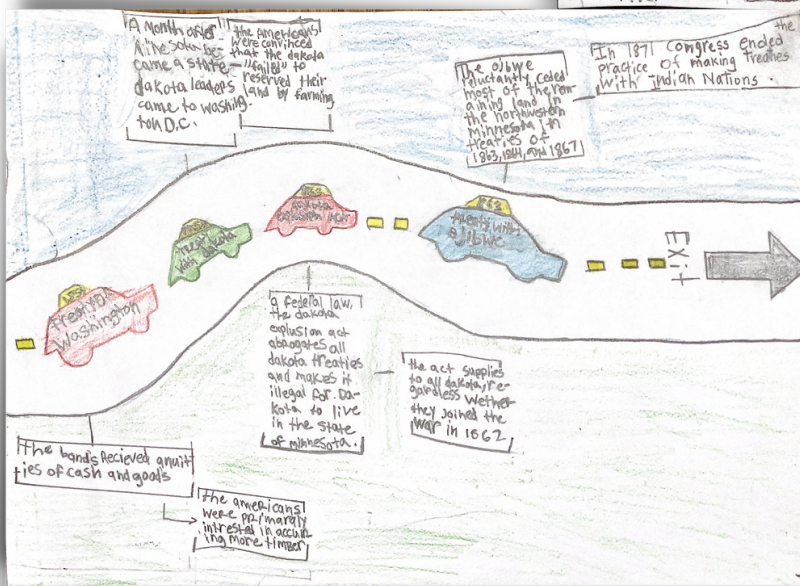 A Month after
Minnesota be
came a state
dakota leaders
came to washing
ton D.C.
the Americans
were convinced
that the dakota
"failed" to
reserved their
land by farming
The Ojbwe
reluctantly ceded
most of the rem
aining land in
the northwestern
Minnesota in
treaties of
1863, 1864, and 1867
In 1871 Congress ended the
practice of making treaties
With Indian Nations.
Treaty of
Washington
1858
Treaty
with dakota
1863
dakota
Expulsion Act
1863
treaty with
ojibwe
Exit
a federal law,
the dakota
explusion act
abrogates all
dakota treaties
and makes it
illegal for Da-
kota to live
in the state
of minnesota.
the act supplies
to all dakota, re-
gardless wether
they joined the
war in 1862
the band's Recieved anuit
ties of cash and goods
the americans
were primaraly
intrested in accuir
ing more timber